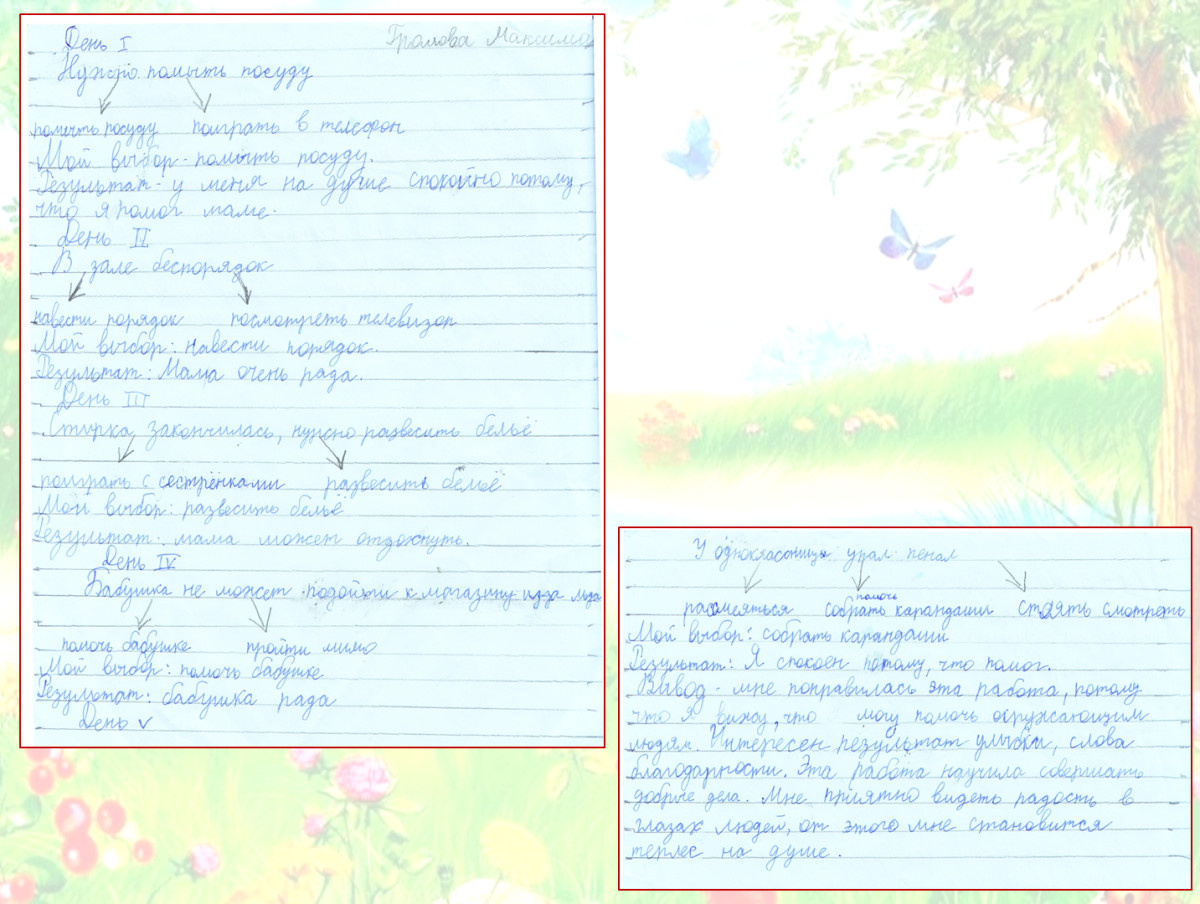 День I Громова Максима
Нужно помыть посуду
помыть посуду поиграть в телефон
Мой выбор - помыть посуду.
Результат - у меня на душе спокойно потому,
что я помог маме.
День II
В зале беспорядок
навести порядок посмотреть телевизор
Мой выбор: навести порядок.
Результат: Мама очень рада.
День III
Стирка закончилась, нужно развесить бельё
поиграть с сестрёнками развесить бельё
Мой выбор: развесить бельё
Результат: мама может отдохнуть.
День IV
Бабушка не может подойти к магазину из-за льда
помочь бабушке пройти мимо
Мой выбор: помочь бабушке
Результат: бабушка рада
День V
У однокласницы упал пенал
помочь
рассмеяться собрать карандаши стоять смотреть
Мой выбор: собрать карандаши
Результат: Я спокоен потому, что помог.
Вывод - мне понравилась эта работа, потому
что я вижу, что могу помочь окружающим
людям. Интересен результат улыбки, слова
благодарности. Эта работа научила совершать
добрые дела. Мне приятно видеть радость в
глазах людей, от этого мне становится
теплее на душе.